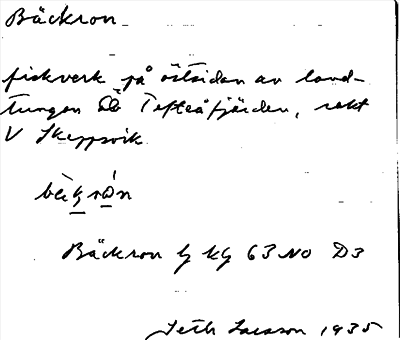 Bäckron
fiskverk på östsidan av land-
tungen Öb Tefteåfjärden, rakt
V Skeppsvik
bèkrón
Bäckron kg 63 NO D3
Seth Larsson 1935